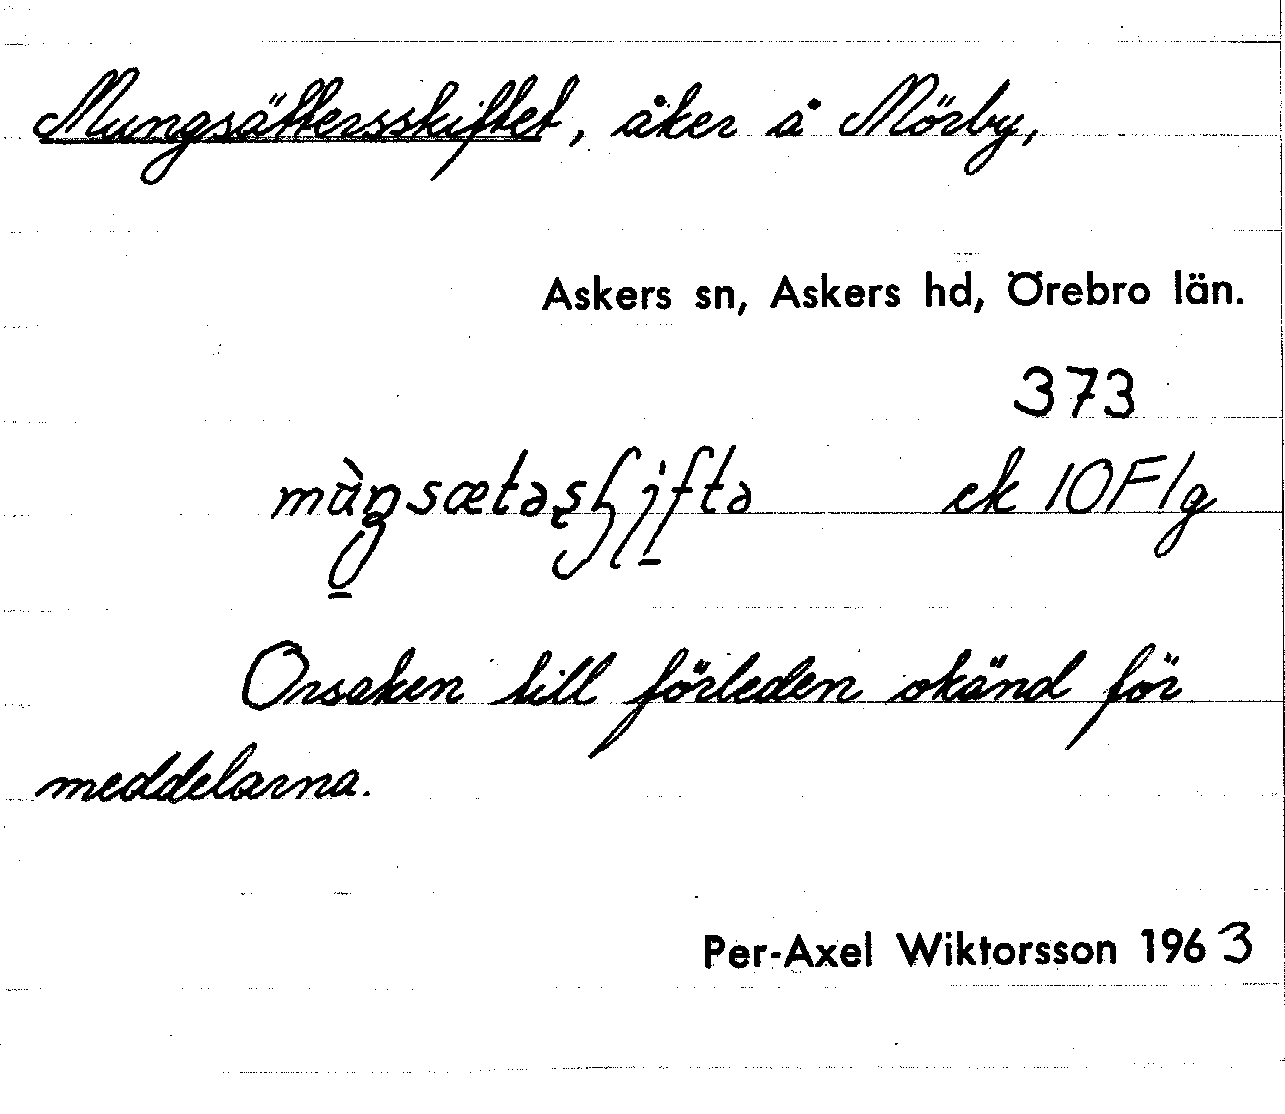 Mungsättersskiftet, åker å Mörby,
Askers sn, Askers hd, Örebro län.
373
ek 10F1g
Orsaken till förleden okänd för
meddelarna.
Per-Axel Wiktorsson 1963